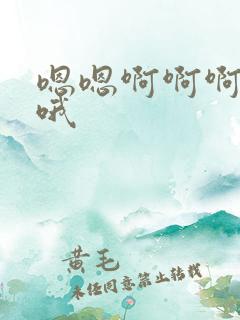 嗯嗯啊啊啊
哦
黄毛
未经同意禁止转载